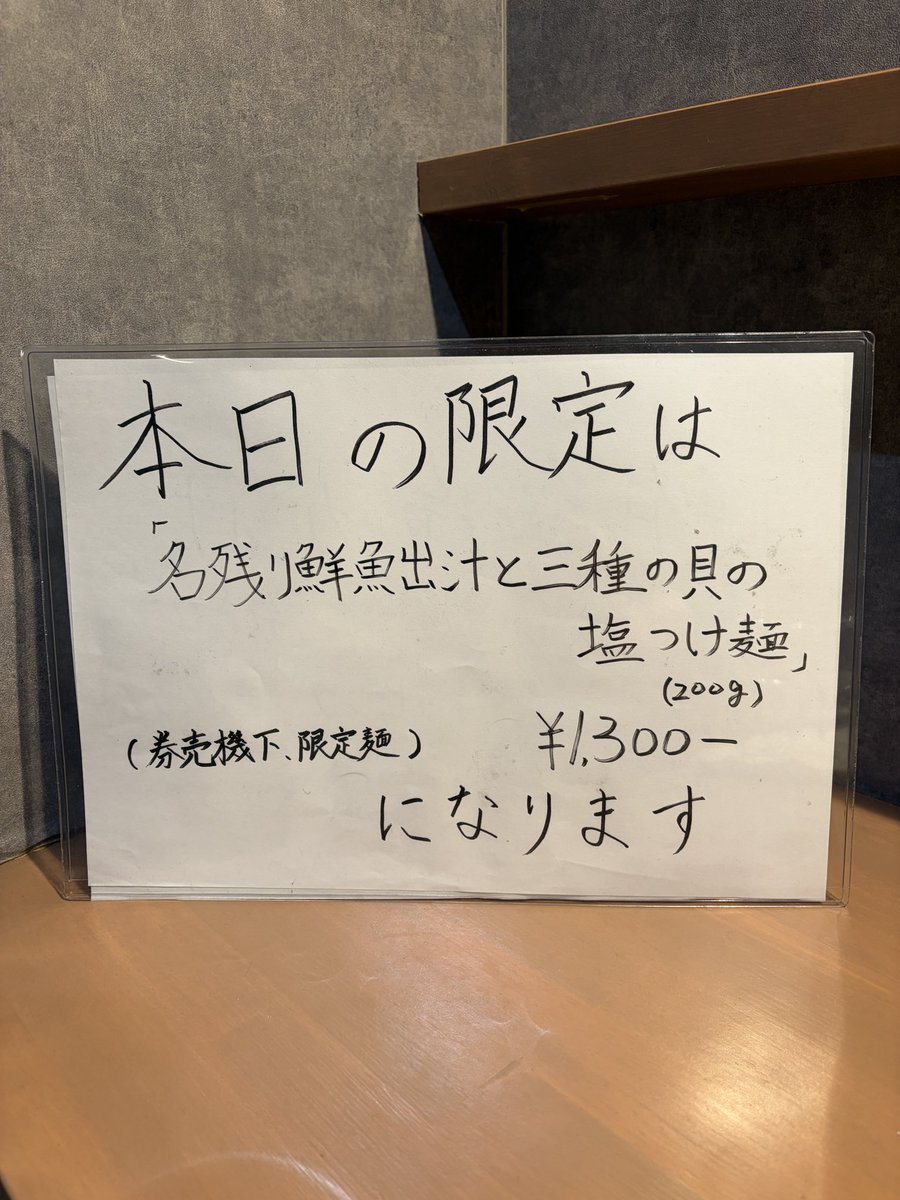 本日の限定は
「名残り鮮魚出汁と三種の貝の
塩つけ麺」
(200g)
(券売機下、限定麺) ¥1,300ー
になります